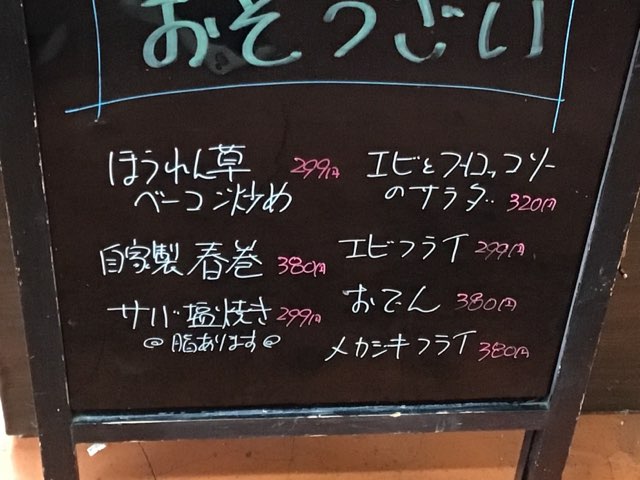 おそうざい
ほうれん草 299円
ベーコン炒め
自家製 春巻 380円
サバ塩焼き 299円
@脂あります@
エビとブロッコリー
のサラダ 320円
エビフライ 299円
おでん 380円
メカジキフライ 380円